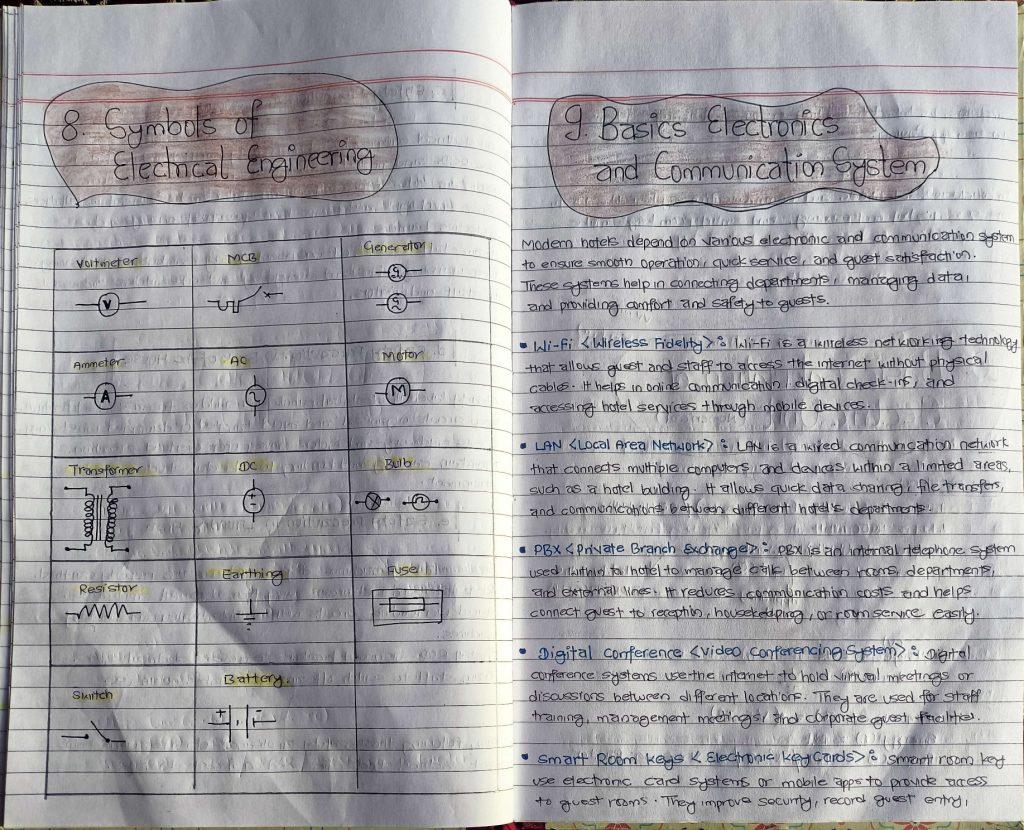 8. Symbols of
Electrical Engineering
Voltmeter MCB Generator
V G
G
Ammeter AC Motor
A M
Transformer DC Bulb
+
-
Resistor Earthing Fuse
Switch Battery.
+ -
9. Basics Electronics
and Communication System
Modern hotels depend on various electronic and communication system
to ensure smooth operation, quick service, and guest satisfaction.
These systems help in connecting departments, managing data,
and providing comfort and safety to guests.
• Wi-Fi <Wireless Fidelity> : Wi-Fi is a wireless networking technology
that allows guest and staff to access the internet without physical
cables. It helps in online communication, digital check-ins, and
accessing hotel services through mobile devices.
• LAN <Local Area Network> : LAN is a wired communication network
that connects multiple computers and devices within a limited areas,
such as a hotel building. It allows quick data sharing, file transfers,
and communications between different hotel's departments.
• PBX <Private Branch Exchange> : PBX is an internal telephone system
used within to hotel to manage calls between rooms, departments,
and external lines. It reduces communication costs and helps
connect guest to reception, housekeeping, or room service easily.
• Digital conference <Video Conferencing System> : Digital
conference systems use the intranet to hold virtual meetings or
discussions between different locations. They are used for staff
training, management meetings, and corporate guest facilities.
• Smart Room keys < Electronic Key Cards> : Smart room key
use electronic card systems or mobile apps to provide access
to guest rooms. They improve security, record guest entry,